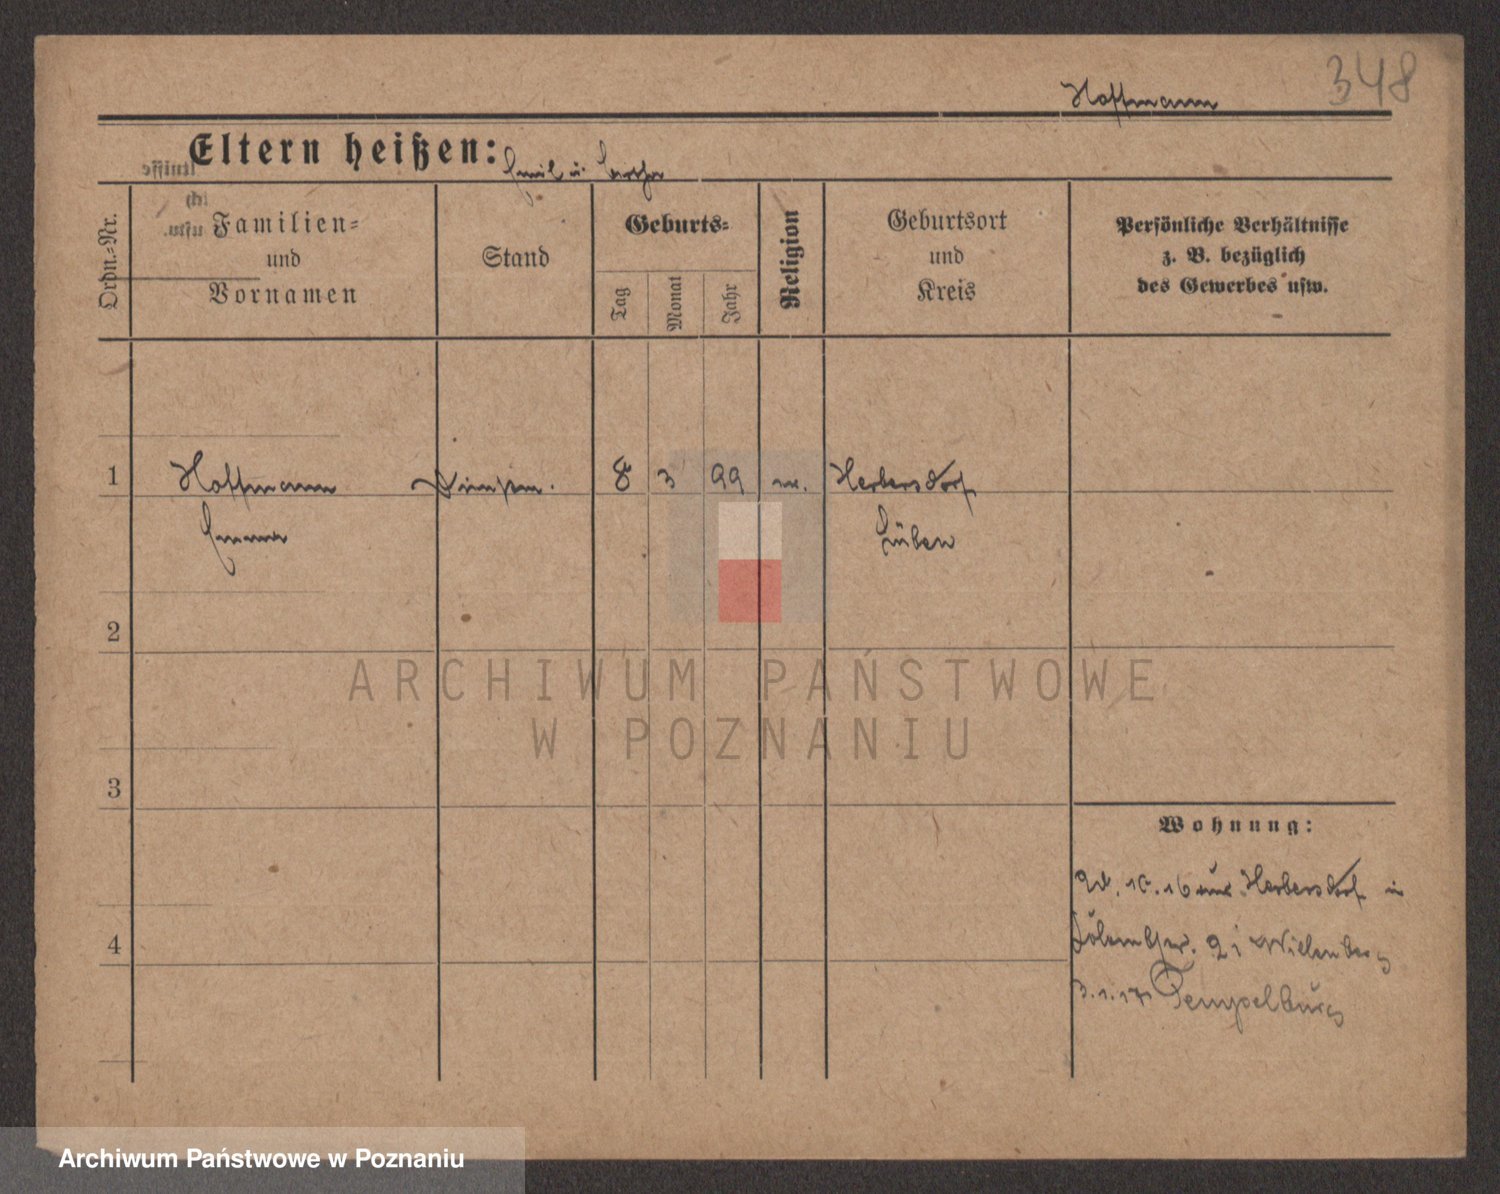 348
Hoffmann
Eltern heißen: Emil u. Bertha
Ordn.-Nr.
Familien-
und
Vornamen
Stand
Geburts-
Tag
Monat
Jahr
Religion
Geburtsort
und
Kreis
Persönliche Verhältnisse
z. B. bezüglich
des Gewerbes usw.
1
Hoffmann 8 3 99 Herbersdorf
Emma Lüben
2
3
4
Wohnung:
10.16 aus Herbersdorf in
21 Wittenberg
3.1.17 Tempelburg
ARCHIWUM PAŃSTWOWE
W POZNANIU
Archiwum Państwowe w Poznaniu